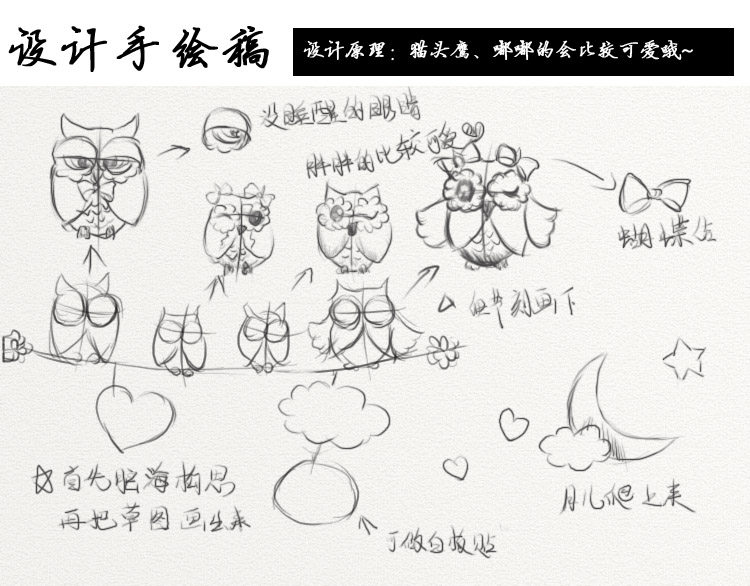 设计手绘稿
设计原理：猫头鹰、嘟嘟的会比较可爱哦~
没睡醒的眼睛
胖胖的比较可爱
蝴蝶结
细节刻画下
首先脑海构思
再把草图画出来
月儿爬上来
可做白板贴